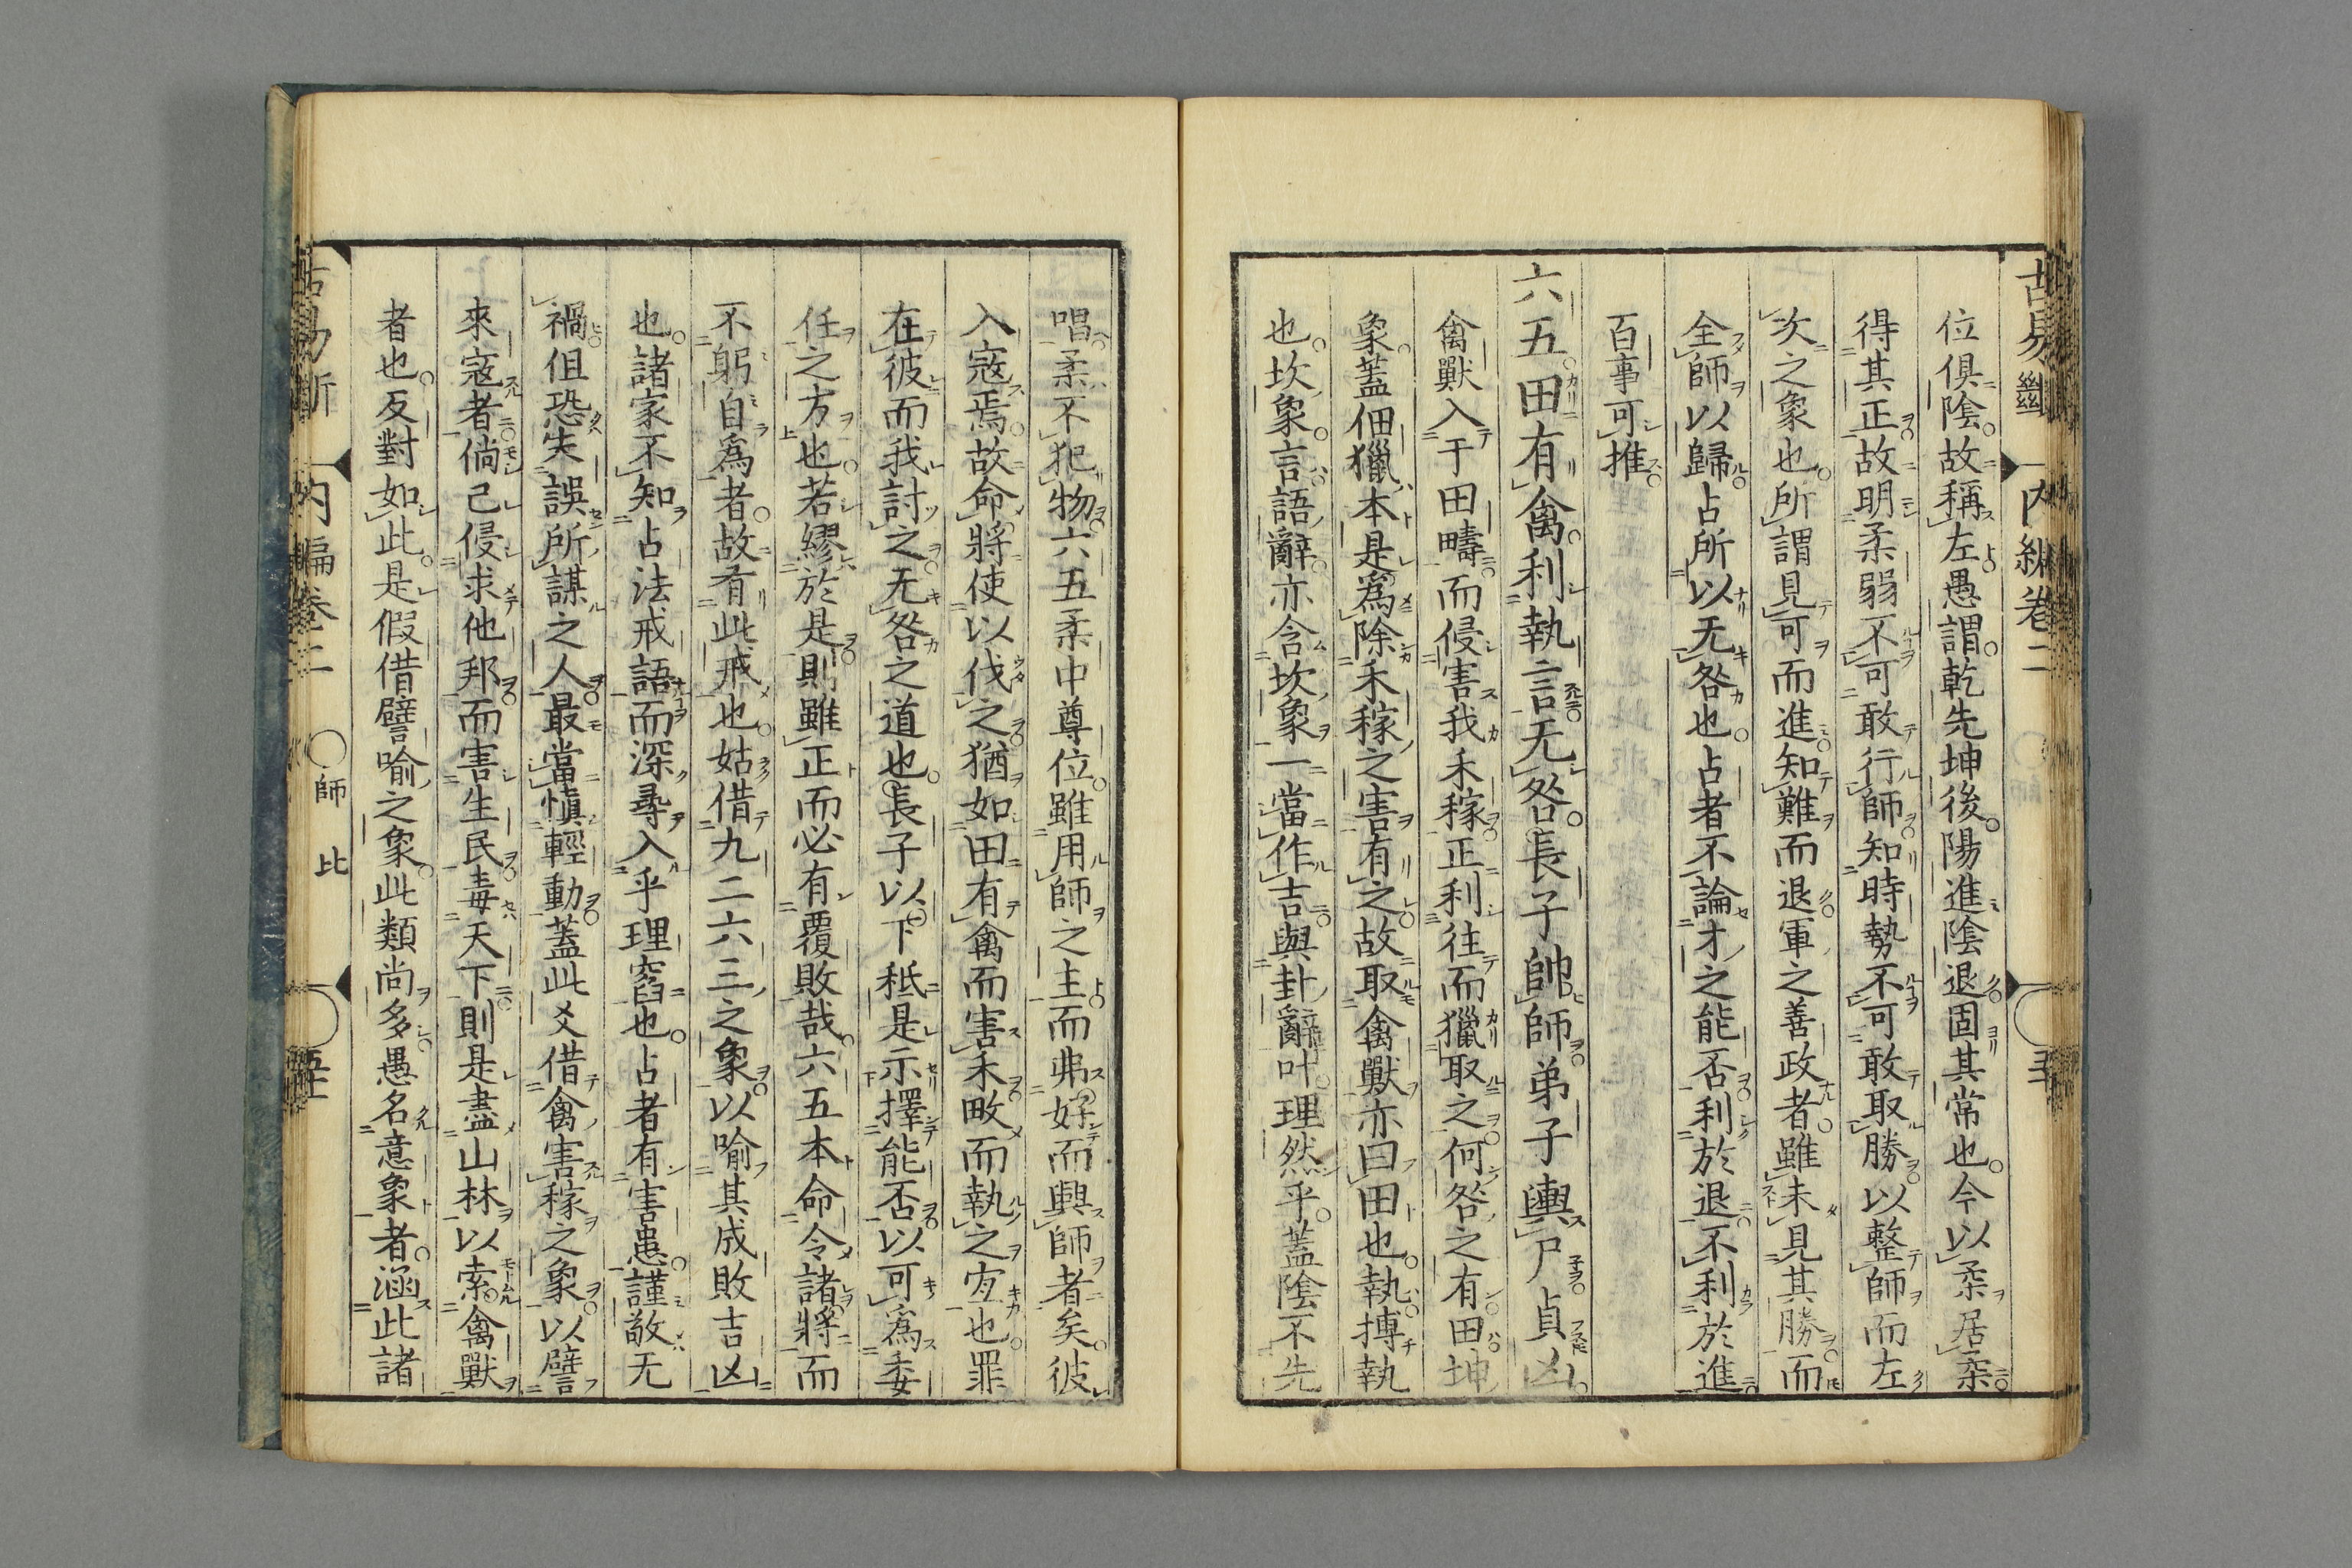 位俱陰故稱左愚謂乾先坤後陽進陰退固其常也今以柔居柔
得其正故明柔弱不可敢行師知時勢不可敢取勝以整師而左
次之象也所謂見可而進知難而退軍之善政者雖未見其勝而
全師以歸占所以无咎也占者不論才之能否利於退不利於進
百事可推
六五田有禽利執言无咎長子帥師弟子輿尸貞凶
禽獸入于田疇而侵害我禾稼正利往而獵取之何咎之有田坤
象蓋佃獵本是爲除禾稼之害有之故取禽獸亦曰田也執搏執
也坎象言語辭亦含坎象一當作吉與卦辭叶理然乎蓋陰不先
唱柔不犯物六五柔中尊位雖用師之主而弗好而興師者矣彼
入寇焉故命將使以伐之猶如田有禽而害禾畋而執之宜也罪
在彼而我討之无咎之道也長子以下秖是示擇能否以可爲委
任之方也若繆於是則雖正而必有覆敗哉六五本命令諸將而
不躬自爲者故有此戒也姑借九二六三之象以喻其成敗吉凶
也諸家不知占法戒語而深尋入乎理窟也占者有害患謹敬无
禍但恐失誤所謀之人最當愼輕動蓋此爻借禽害稼之象以譬
來寇者倘己侵求他邦而害生民毒天下則是盡山林以索禽獸
者也反對如此是假借譬喻之象此類尚多愚名意象者涵此諸
內編卷二
師 比